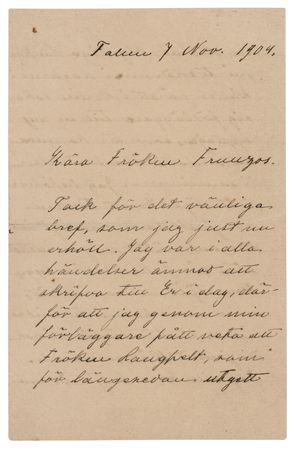 Falun 7 Nov. 1904.
Kära Fröken Franzos.
Tack för det vänliga
bref, som jag just nu
erhöll. Jag var i alla
händelser ämnad att
skrifva till Er i dag, där-
för att jag genom min
förläggare fått veta att
Fröken Langfelt, som
för längesedan utgett